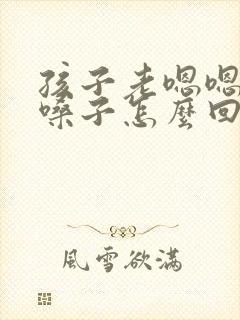 孩子老嗯嗯
嗓子怎麼回
風雪欲滿